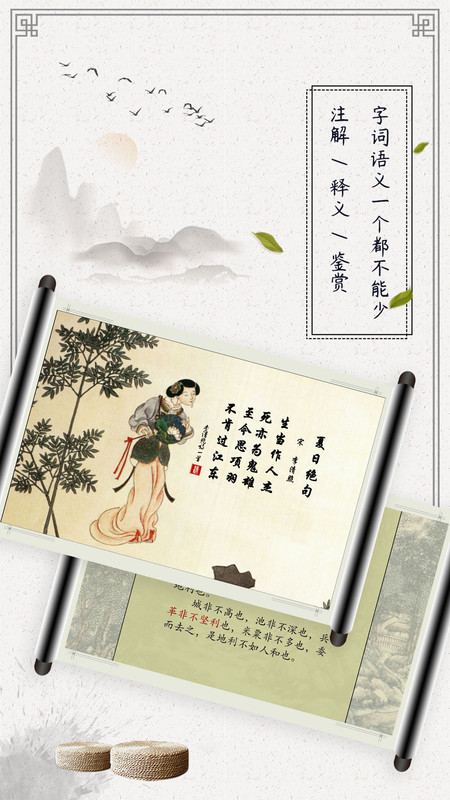 字词语义一个都不能少
注解/释义/鉴赏
夏日绝句
宋 李清照
生当作人主
死亦为鬼雄
至命思项羽
不肯过江东
地利也。
城非不高也，池非不深也，兵
革非不坚利也，米粟非不多也，委
而去之，是地利不如人和也。